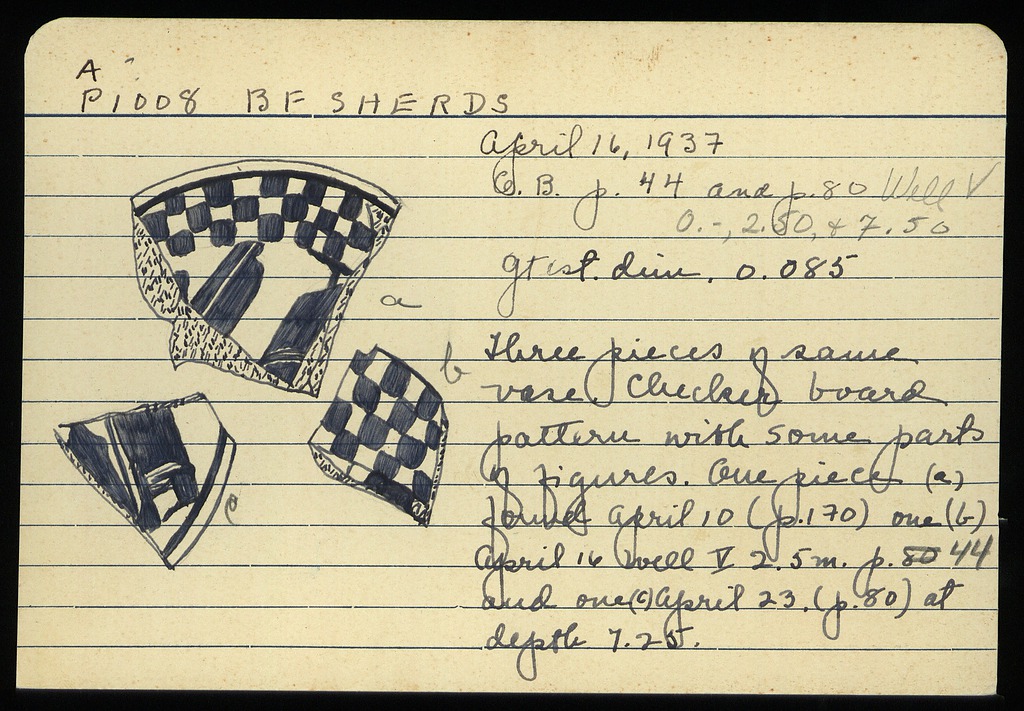 A
P1008 BF SHERDS
April 16, 1937
G. B. p. 44 and p. 80 Well V
0.-, 2.50, & 7.50
gtest. dim. 0.085
a
Three pieces of same
b
vase. Checker board
pattern with some parts
of figures. One piece (a)
c
found April 10 (p. 170) one (b)
April 16 Well V 2.5m. p. 80 44
and one (c) April 23. (p. 80) at
depth 7.25.